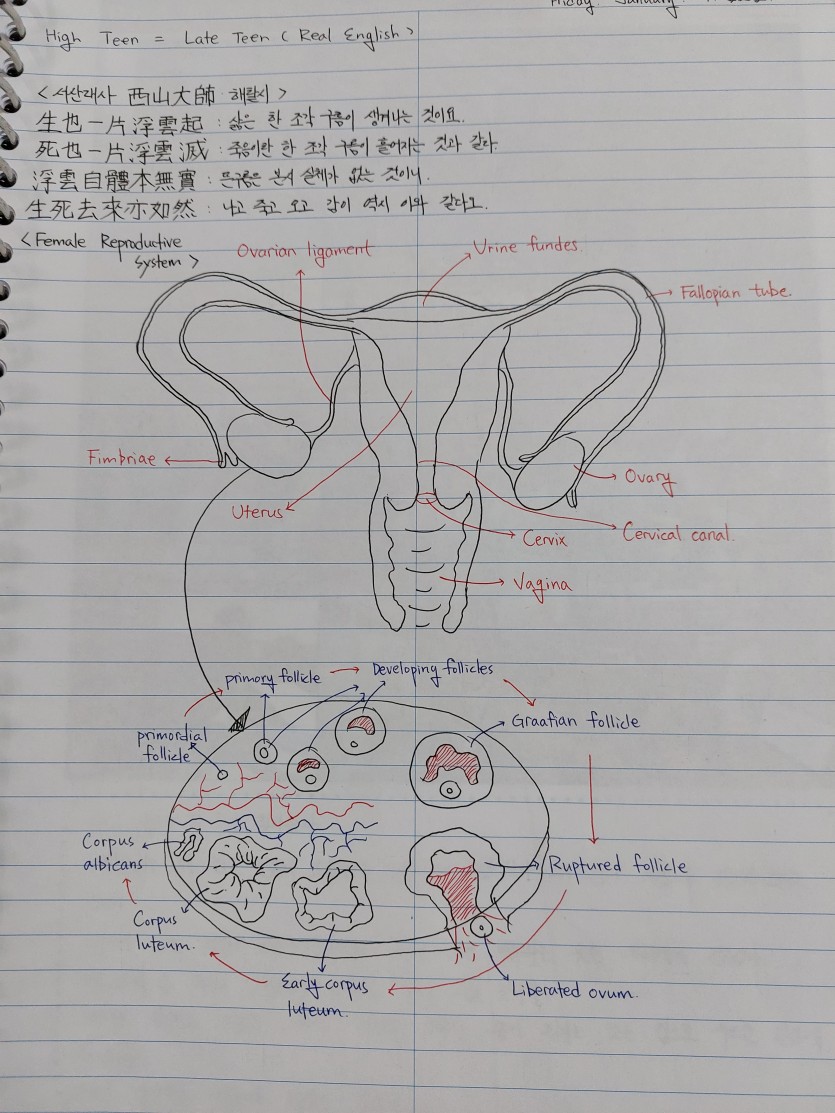 Friday. January.
High Teen = Late Teen ( Real English )
< 서산대사 西山大師 해탈시 >
生也一片浮雲起 : 삶은 한 조각 구름이 생겨나는 것이요.
死也一片浮雲滅 : 죽음이란 한 조각 구름이 흩어지는 것과 같다.
浮雲自體本無實 : 뜬구름은 본시 실체가 없는 것이니.
生死去來亦如然 : 나고 죽고 오고 감이 역시 이와 같다오.
< Female Reproductive
System >
Ovarian ligament
Urine fundes.
Fallopian tube.
Fimbriae
Ovary
Uterus
Cervix
Cervical canal.
Vagina
primary follicle
Developing follicles
primordial
follicle
Graafian follicle
Corpus
albicans
Ruptured follicle
Corpus
luteum.
Early corpus
luteum.
Liberated ovum.